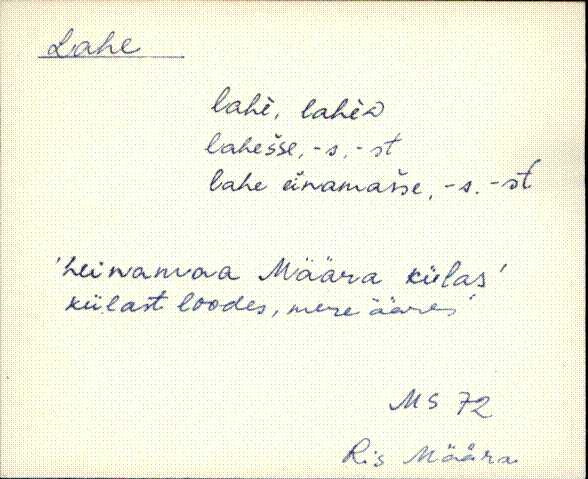 Lahe
lahè, lahèᴅ
lahešše, -s, -st
lahe einamašše, -s, -st
'heinamaa Määra külas'
külast loodes, mere ääres
MS 72
Ris Määra